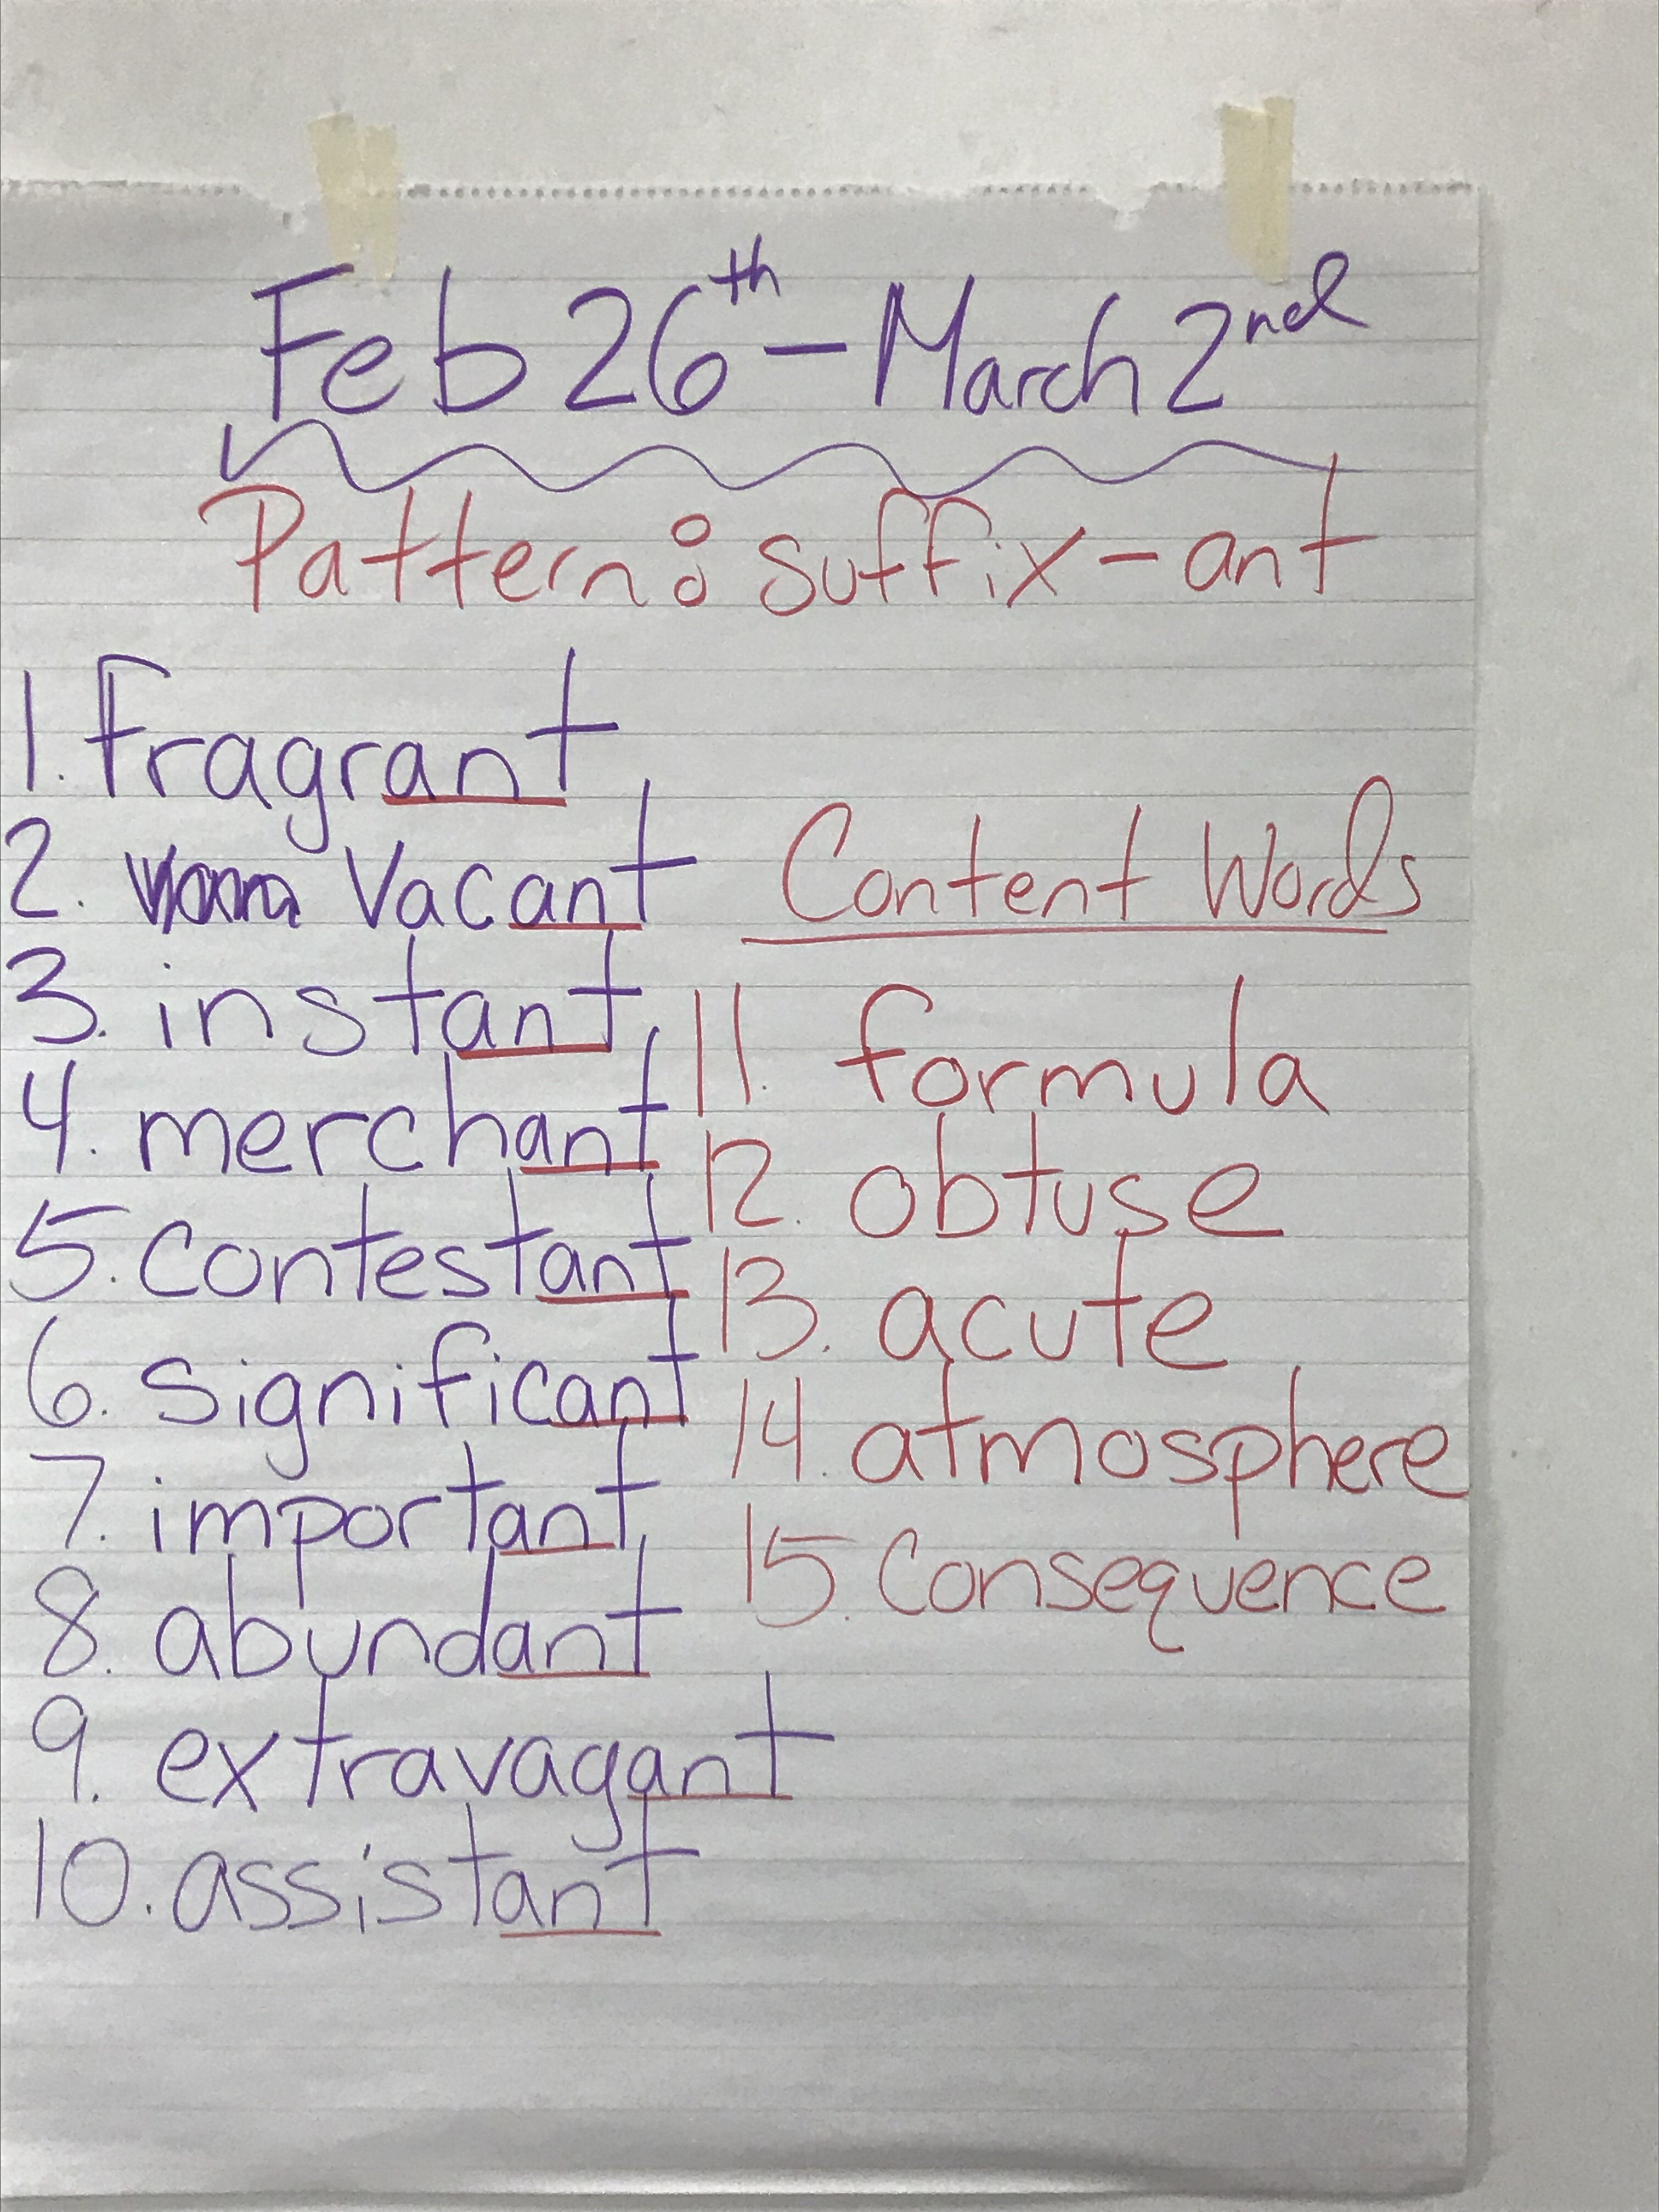 Feb 26th - March 2nd
Pattern: suffix - ant
1. fragrant
2. Vacant
3. instant
4. merchant
5. contestant
6. significant
7. important
8. abundant
9. extravagant
10. assistant
Content Words
11. formula
12. obtuse
13. acute
14. atmosphere
15. Consequence